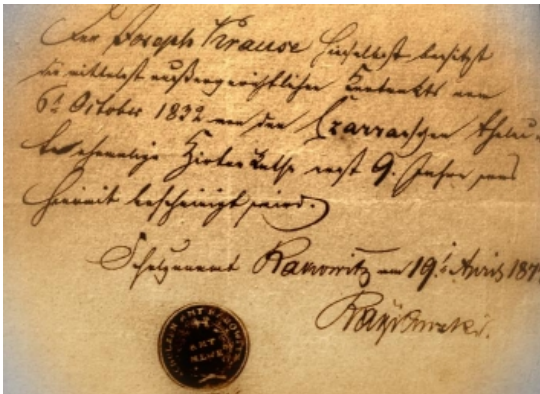 Der Joseph Krause hieselbst besitzt
die mittelst außergerichtlichen Contrakts vom
6t October 1832 von den Czarraschen
ehemalige Hirten Kathe nebst 9. was
hiermit bescheinigt wird.
Schulzenamt Rakowitz am 19t April 187
AMT
MEWE